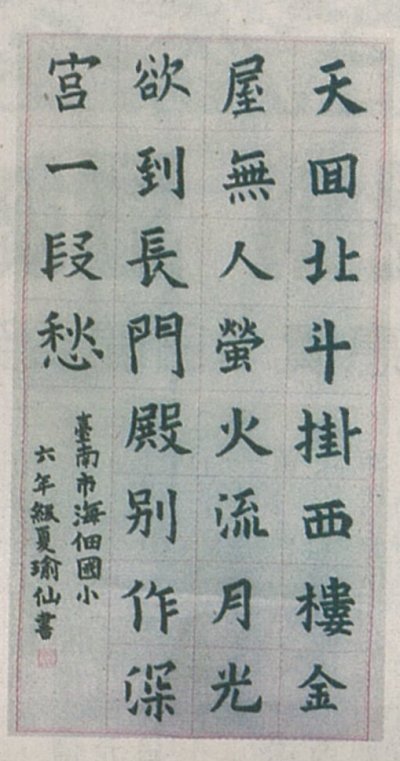 天囬北斗掛西樓金
屋無人螢火流月光
欲到長門殿別作深
宮一段愁
臺南市海佃國小
六年級夏瑜仙書